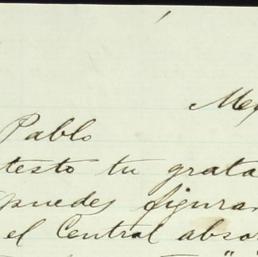 Mex
Pablo
testo tu grata
puedes figurar
el Central abso